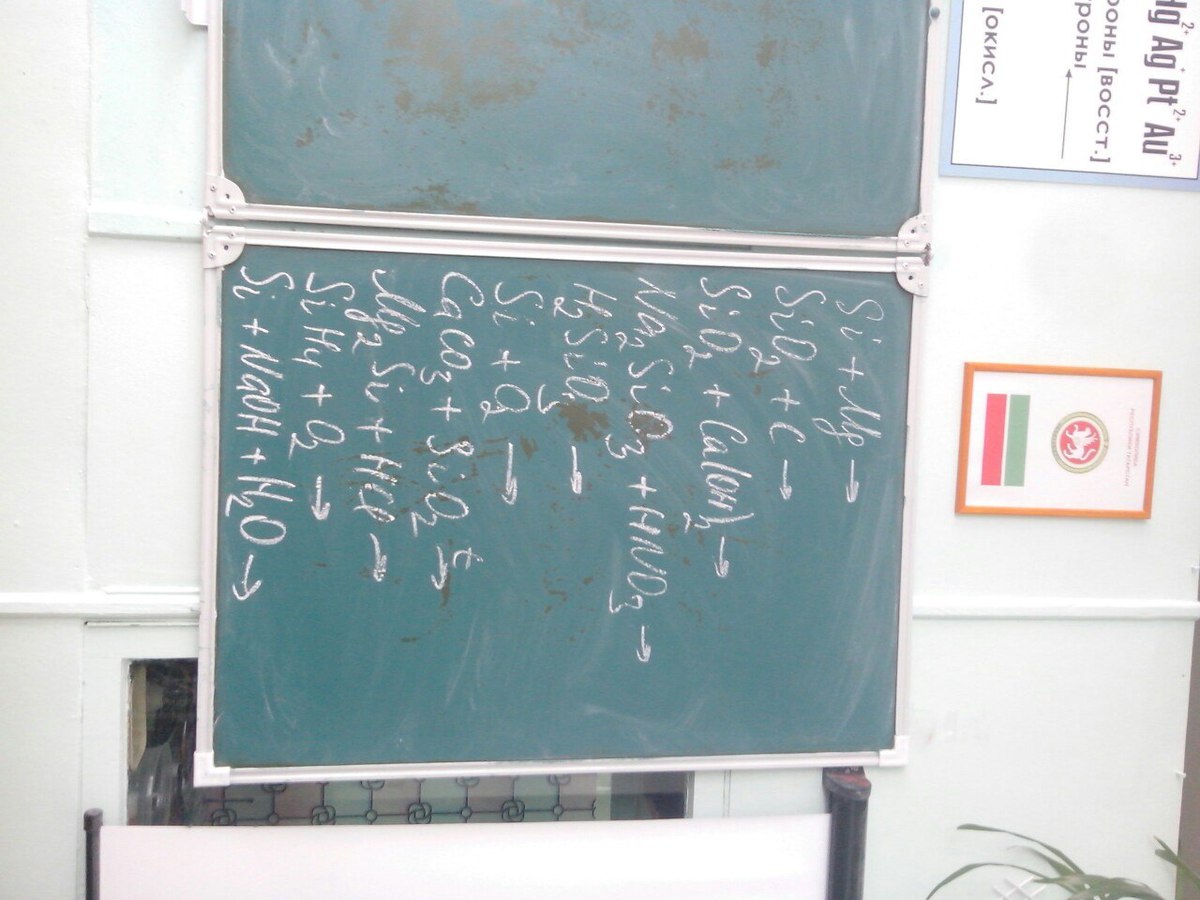 Hg²⁺ Ag⁺ Pt²⁺ Au³⁺
роны [восст.]
роны
[окисл.]
РЕСПУБЛИКИ ТАТАРСТАН
Si + Mg →
SiO₂ + C →
SiO₂ + Ca(OH)₂ →
Na₂SiO₃ + HNO₃ →
H₂SiO₃ →
Si + O₂ →
CaCO₃ + SiO₂ t→
Mg₂Si + HCl →
SiH₄ + O₂ →
Si + NaOH + H₂O →